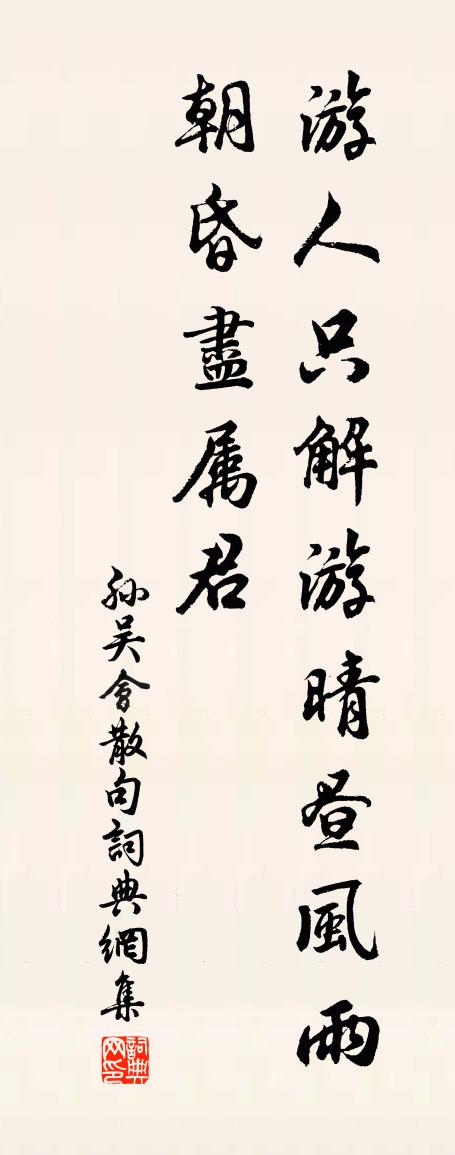 游人只解游晴昼風雨
朝昏盡属君
孙吴會散句詞典網集
詞典网印